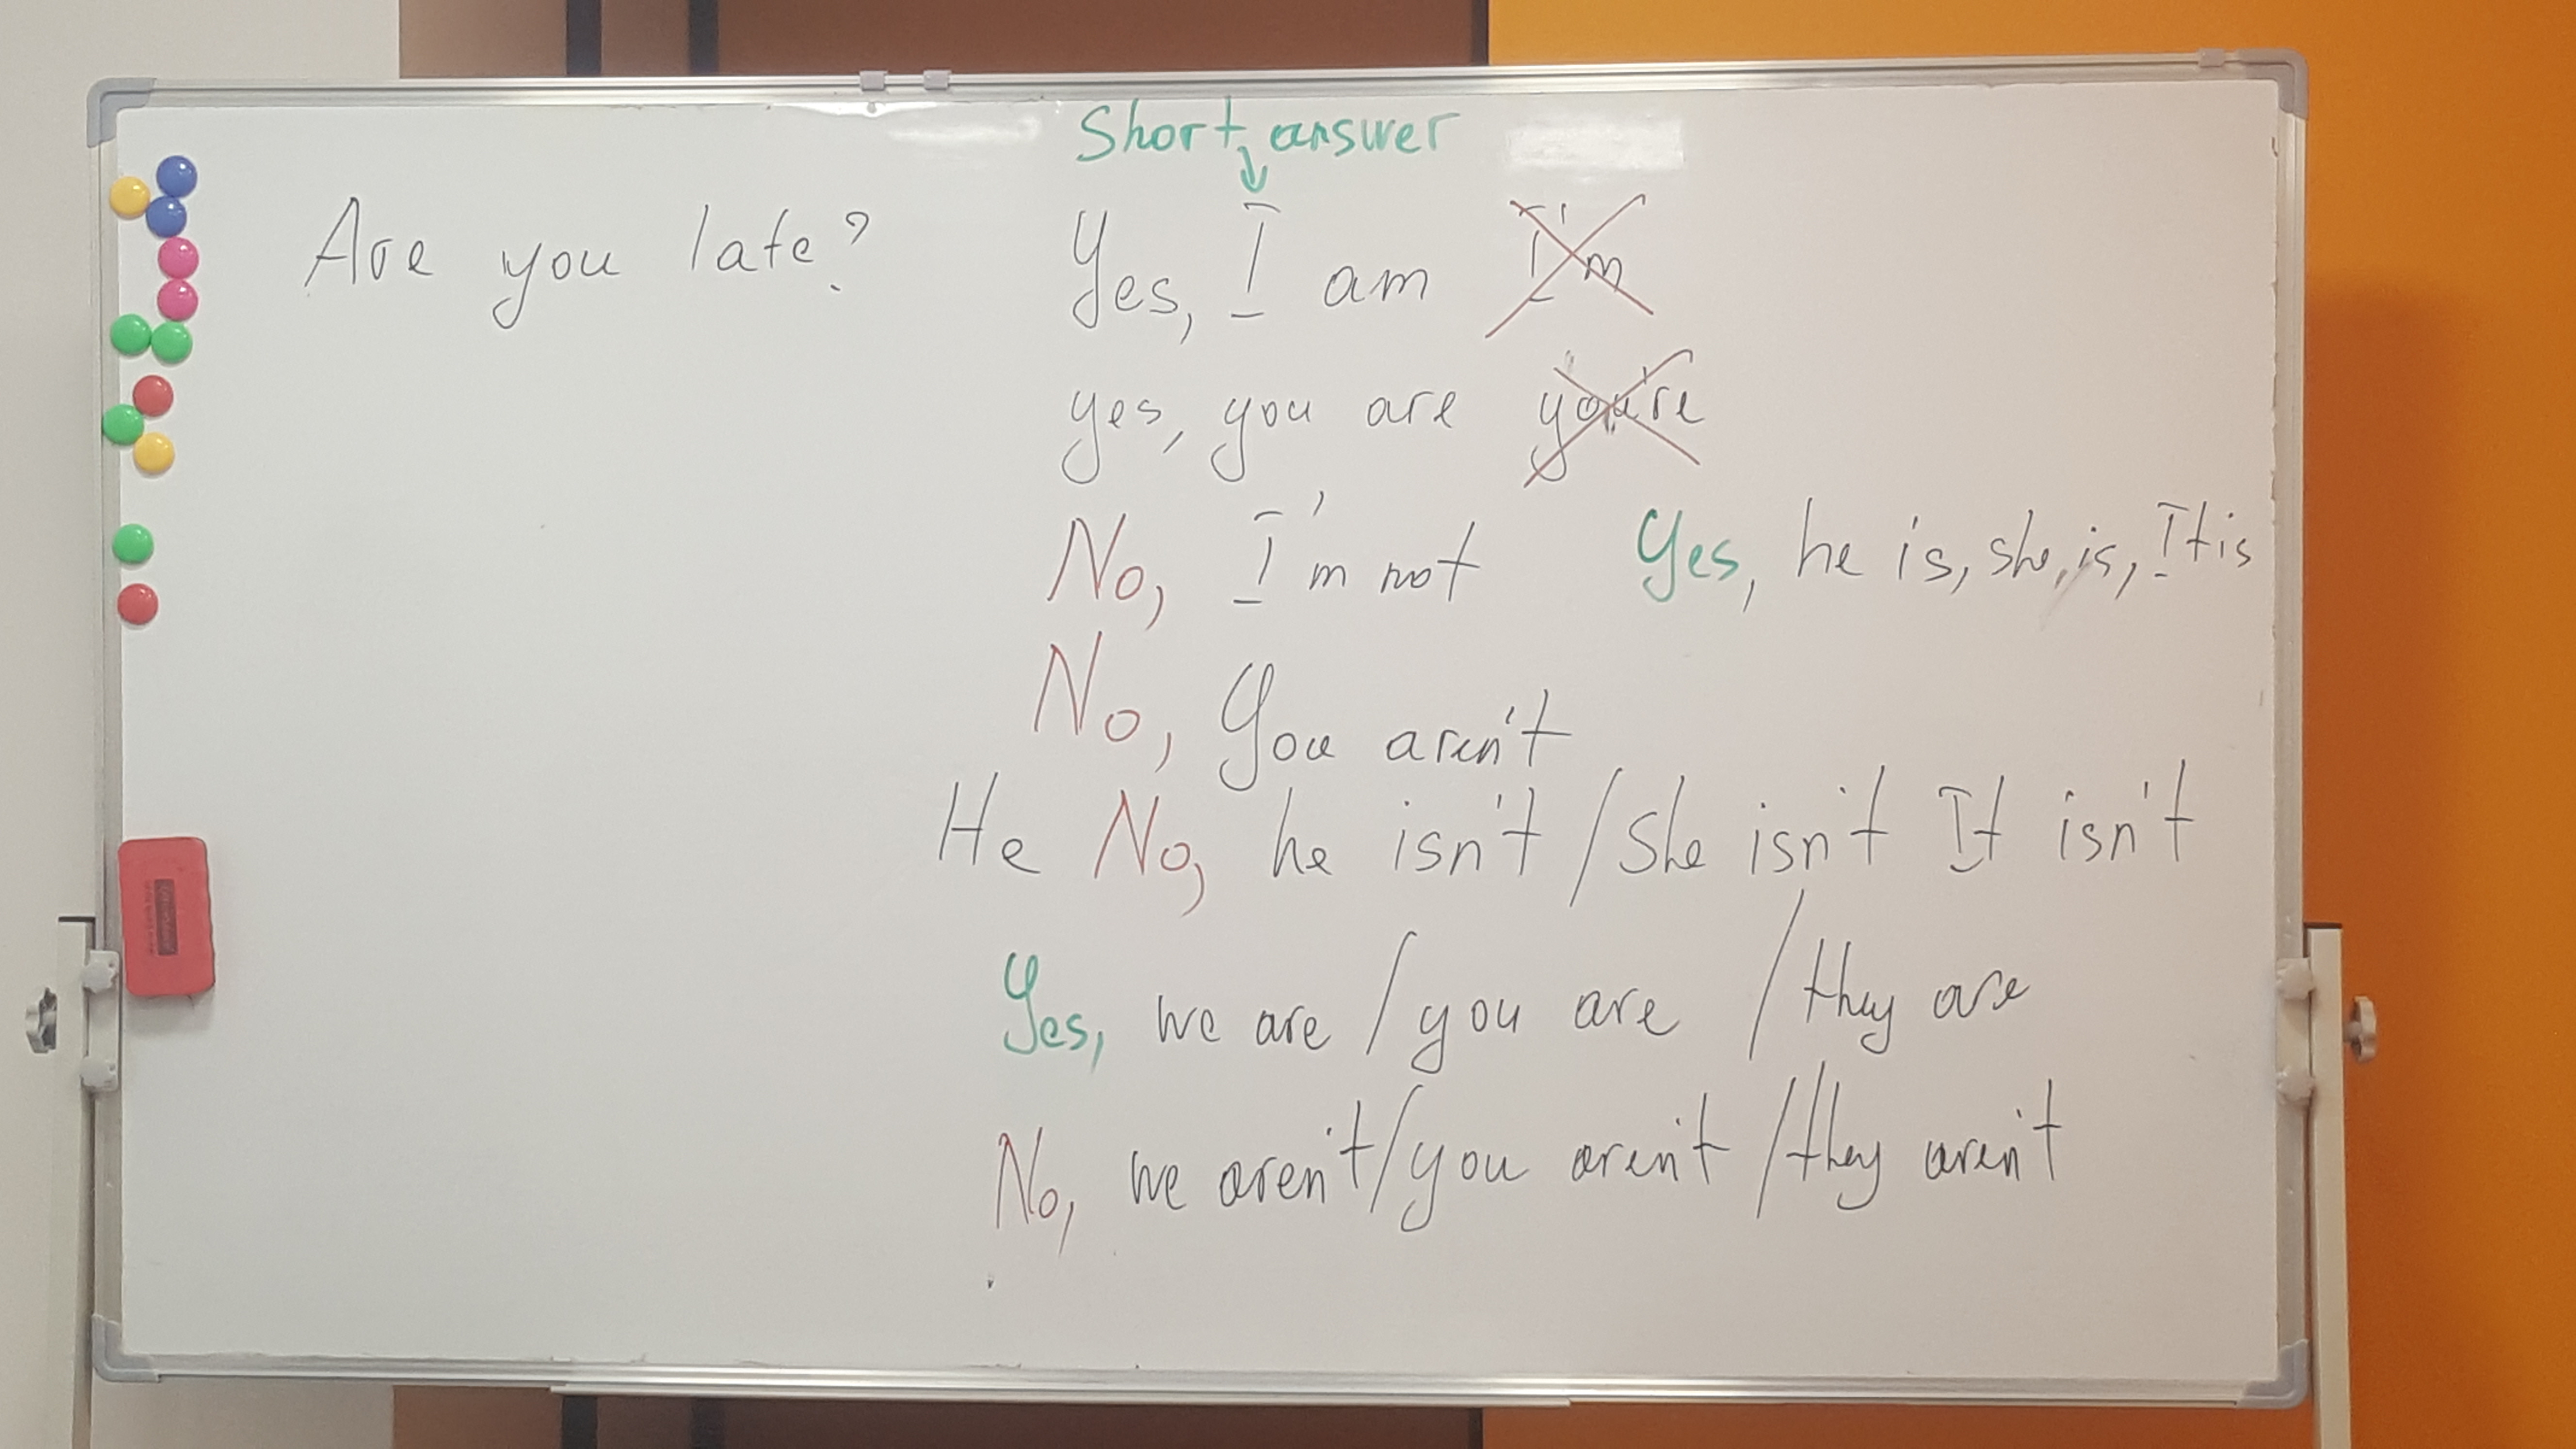 Short answer
Are you late? Yes, I am I'm
yes, you are you're
No, I'm not Yes, he is, she, is, It is
No, You aren't
He No, he isn't / She isn't It isn't
Yes, we are / you are / they are
No, we aren't / you aren't / they aren't